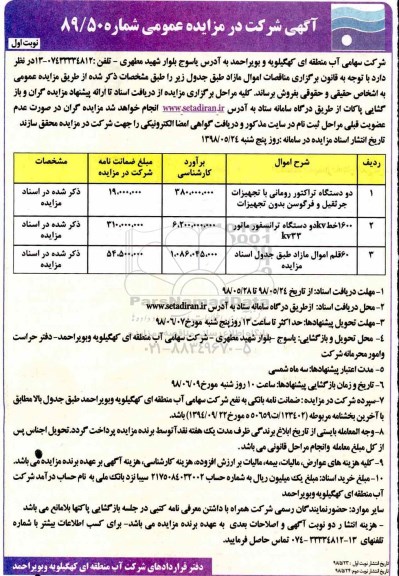 آگهی شرکت در مزایده عمومی شماره ۸۹/۵۰
نوبت اول
شرکت سهامی آب منطقه ای کهگیلویه و بویراحمد به آدرس یاسوج بلوار شهید مطهری - تلفن :۱۳-۰۷۴۳۳۳۳۴۸۱۲در نظر
دارد با توجه به قانون برگزاری مناقصات اموال مازاد طبق جدول زیر را طبق مشخصات ذکر شده از طریق مزایده عمومی
به اشخاص حقیقی و حقوقی بفروش برساند. کلیه مراحل برگزاری مزایده از دریافت اسناد تا ارائه پیشنهاد مزایده گران و باز
گشایی پاکات از طریق درگاه سامانه ستاد به آدرس www.setadiran.ir انجام خواهد شد مزایده گران در صورت عدم
عضویت قبلی مراحل ثبت نام در سایت مذکور و دریافت گواهی امضا الکترونیکی را جهت شرکت در مزایده محقق سازند
تاریخ انتشار اسناد مزایده در سامانه :روز پنج شنبه ۱۳۹۸/۰۵/۲۴
ردیف شرح اموال برآورد کارشناسی مبلغ ضمانت نامه شرکت در مزایده مشخصات
۱ دو دستگاه تراکتور رومانی با تجهیزات جرثقیل و فرگوسن بدون تجهیزات ۳۸۰.۰۰۰.۰۰۰ ۱۹.۰۰۰.۰۰۰ ذکر شده در اسناد مزایده
۲ ۱۶۰۰خطkvدو دستگاه ترانسفور ماتور kv۳۳ ۶.۲۰۰.۰۰۰.۰۰۰ ۳۱۰.۰۰۰.۰۰۰ ذکر شده در اسناد مزایده
۳ ۶۰قلم اموال مازاد طبق جدول اسناد مزایده ۱.۰۸۶.۰۴۵.۰۰۰ ۵۴.۵۰۰.۰۰۰ ذکر شده در اسناد مزایده
۱- مهلت دریافت اسناد: از تاریخ ۹۸/۰۵/۲۴ تا ۹۸/۰۵/۲۸
۲- محل دریافت اسناد: ازطریق درگاه سامانه ستاد به آدرس www.setadiran.ir
۳- مهلت تحویل پیشنهادها: حد اکثر تا ساعت ۱۳ روز پنج شنبه مورخ ۹۸/۰۶/۰۷
۴- محل تحویل و بازگشایی: یاسوج -بلوار شهید مطهری - شرکت سهامی آب منطقه ای کهگیلویه وبویراحمد- دفتر حراست
وامور محرمانه شرکت
۵- مدت اعتبار پیشنهادها: سه ماه شمسی
۶- تاریخ و زمان بازگشایی پیشنهادها: ساعت ۱۰ روز شنبه مورخ ۹۸/۰۶/۰۹
۷-سپرده شرکت در مزایده : ضمانت نامه بانکی به نفع شرکت سهامی آب منطقه ای کهگیلویه وبویراحمد طبق جدول بالا مطابق
با آخرین بخشنامه مربوطه (۱۲۳۴۰۲/ت۵۰۶۵۹ه مورخ ۱۳۹۴/۰۹/۲۲) می باشد.
۸-وجه المعامله بایستی از تاریخ ابلاغ برندگی ظرف مدت یک هفته نقدآتوسط برنده مزایده پرداخت گردد.تحویل اجناس پس
از کل مبلغ معامله وانجام مراحل قانونی می باشد.
۹- کلیه هزینه های عوارض، مالیات، بیمه، مالیات بر ارزش افزوده، هزینه کارشناسی، هزینه آگهی بر عهده برنده مزایده می باشد.
۱۰- مبلغ خرید اسناد: مبلغ یک میلیون ریال به شماره حساب ۲۱۷۵۰۸۴۰۳۲۰۰۲ سیبا نزد بانک ملی به نام حساب درآمد شرکت
آب منطقه ای کهگیلویه وبویراحمد
سایر موارد: حضورنمایندگان رسمی شرکت همراه با داشتن معرفی نامه کتبی در جلسه بازگشایی پاکتها بلامانع می باشد
- هزینه انتشا ر دو نوبت آگهی و اصلاحات بعدی به عهده برنده مزایده می باشد- برای کسب اطلاعات بیشتر با شماره
تلفنهای ۱۳-۳۳۳۳۴۸۱۲-۰۷۴ تماس حاصل فرمایید.
تاریخ انتشار نوبت اول : ۹۸/۵/۲۳
تاریخ انتشار نوبت دوم: ۹۸/۵/۲۴
دفتر قراردادهای شرکت آب منطقه ای کهگیلویه وبویراحمد
ParsNamadData
۰۲۱-۸۸۳۴۹۶۷۰-۵